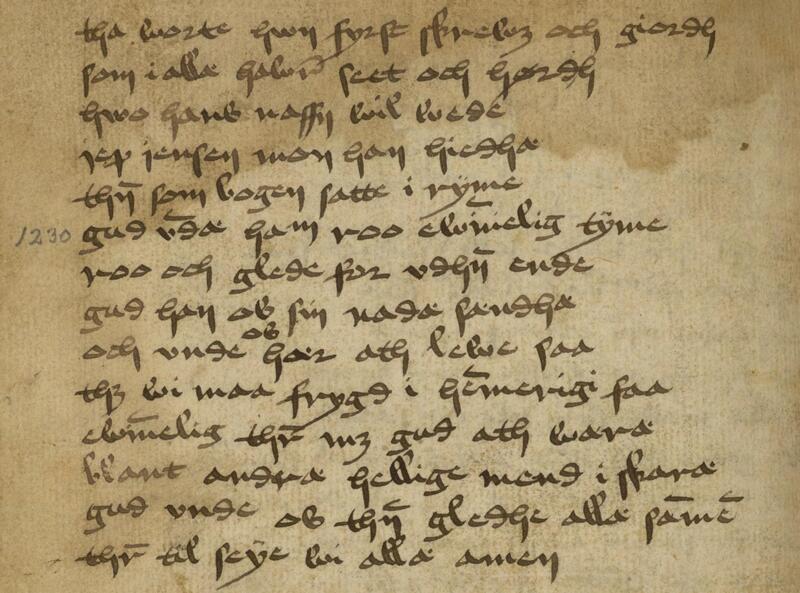 tha worte hwn fyrst skrewꝫ och giordh
som i allæ hawr̄ seet och hørdh
hwo hans naffn wil wede
jep jensen mon han hiedhæ
thn̄ som bogen satte i ryme
1230 gud vn̄dæ ham roo ewīnelig tyme
roo och glede for vdhn̄ ende
gud han os sin nadæ sændhæ
och vnde os hær ath lewe saa
thꝫ wi maa frygd i hēmerigi faa
ewīnelig thr̄ mꝫ gud ath wæræ
blant andræ hellige mend i skaræ
gud vnde os thn̄ gledhe allæ sāmē
thr̄ til seye wi allæ amen